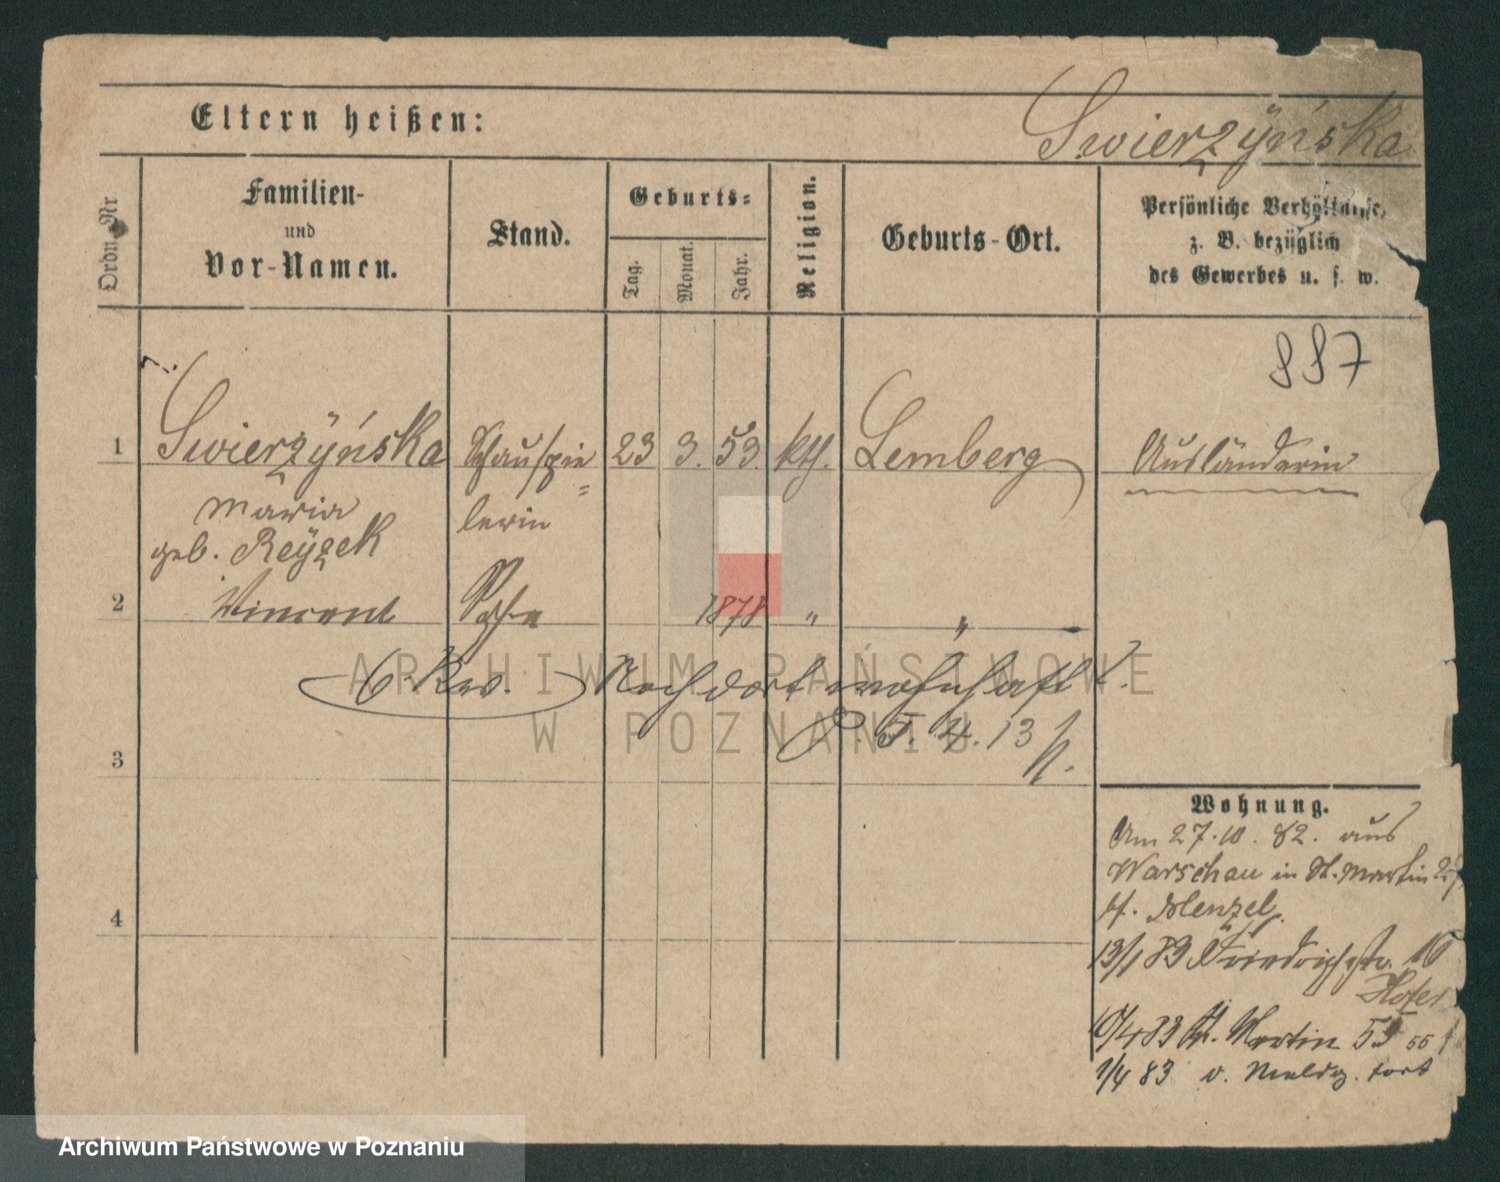 Swierzyńska
Eltern heißen:
Ordn. Nr
Familien-
und
Vor-Namen.
Stand.
Geburts-
Tag.
Monat.
Jahr.
Religion.
Geburts-Ort.
Persönliche Verhältnisse,
z. B. bezüglich
des Gewerbes u. s. w.
887
1 Swierzyńska Schauspie= 23 3. 53. kth. Lemberg Ausländerin
Maria lerin
geb. Reyzek
2 Vincent Sohn 1878 " "
Noch dort wohnhaft?
P. 5. 4. 13
3
4
Wohnung.
Am 27.10.82. aus
Warschau in St. Martin
bf. Menzel.
13/1 83 Friedrichstr. 16
Hotel
10/4 83 St. Martin 53 55
1/4 83 o. Meldg. fort
ARCHIWUM PAŃSTWOWE
W POZNANIU
Archiwum Państwowe w Poznaniu